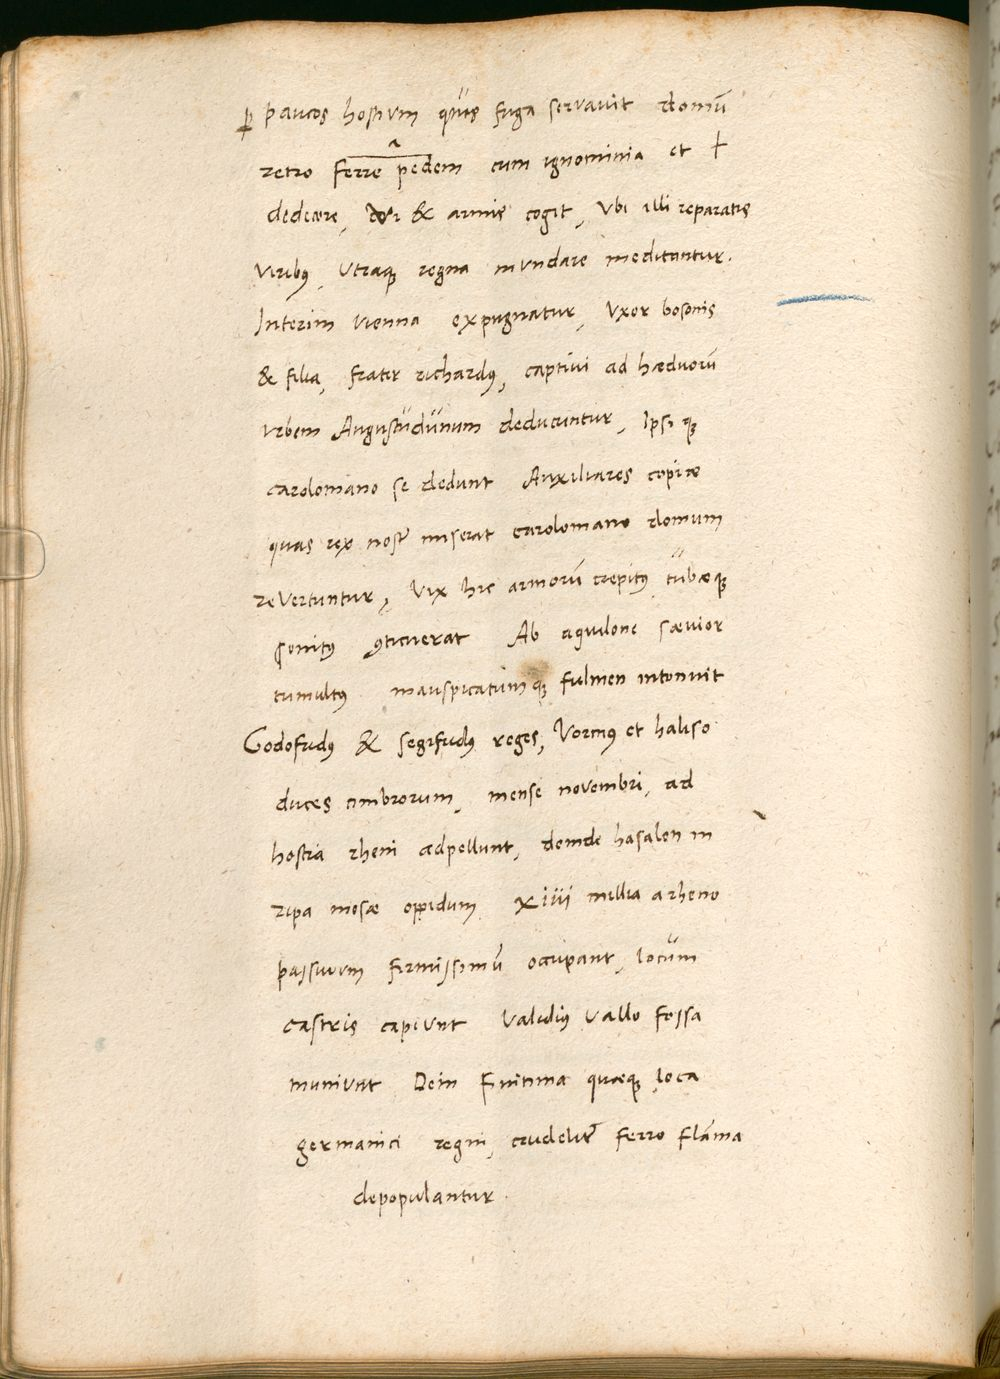 ꝑ paucos hostium quos fuga servavit domū
retro ferre pedem cum ignominia et †
dedecore, & armis cogit, Vbi illi reparatis
viribꝰ, vtraqꝫ regna inundare meditantur.
Interim vienna expugnatur, Vxor bosonis
& filia, frater richardꝰ, captivi ad hæduorū
vrbem Augustŭdŭnum deducuntur, Ipsi qꝫ
carolomano se dedunt Auxiliares copiæ
quas rex nosť miserat carolomano domum
revertuntur, Vix hic armorū crepitꝰ tŭbæqꝫ
sonitꝰ ꝯticuerat Ab aquilone sævior
tumultꝰ inauspicatumqꝫ fulmen intonuit
Godofridꝰ & segifridꝰ reges, Vormꝰ et haliso
duces cimbrorum, mense novembri, ad
hostia rheni adpellunt, deinde hasalon in
ripa mosæ oppidum xiiii millia a rheno
passuum firmissimū occupant, locŭm
castris capiunt Validius vallo fossa
muniunt Dein Finitima quæqꝫ loca
germanici regni, crudeliť ferro flāma
depopulantur.